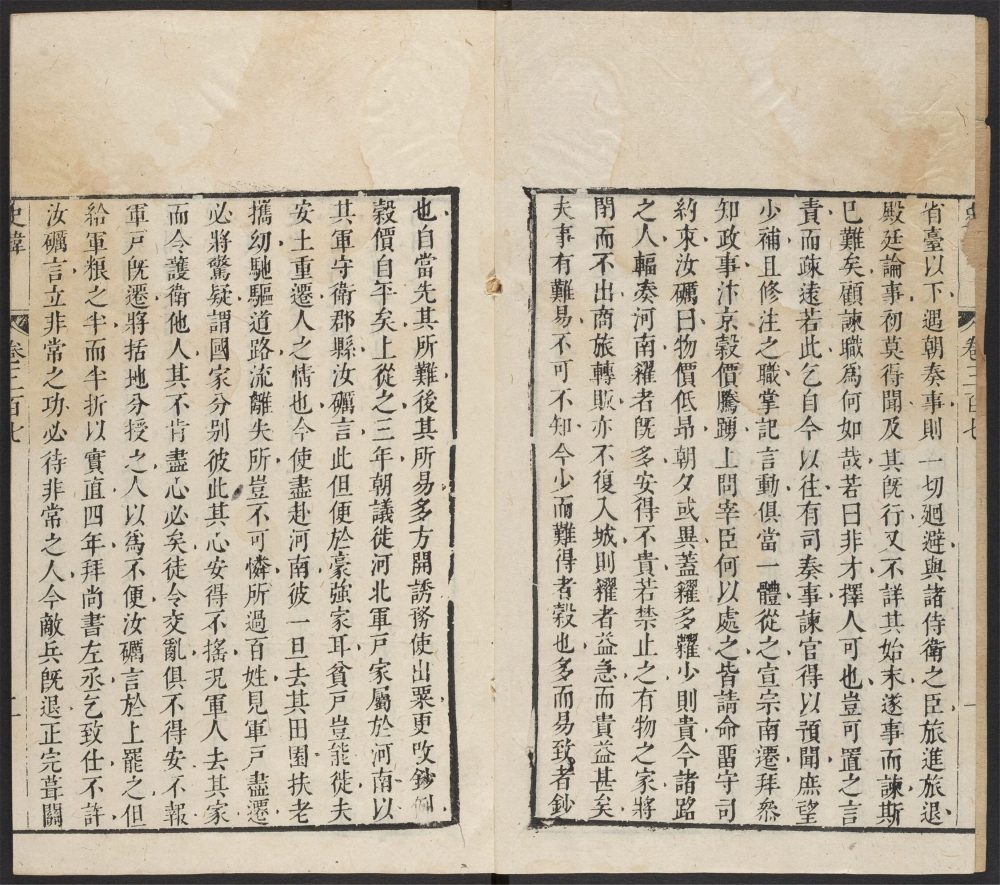 卷三百七
省臺以下遇朝奏事則一切廻避與諸侍衛之臣旅進旅退
殿廷論事初莫得聞及其旣行又不詳其始末遂事而諫斯
已難矣顧諫職爲何如哉若曰非才擇人可也豈可置之言
責而疎遠若此乞自今以往有司奏事諫官得以預聞庶望
少補且修注之職掌記言動俱當一體從之宣宗南遷拜叅
知政事汴京穀價騰踴上問宰臣何以處之皆請命畱守司
約束汝礪曰物價低昻朝夕或異蓋糴多糶少則貴今諸路
之人輻凑河南糴者旣多安得不貴若禁止之有物之家將
閉而不出商旅轉販亦不復入城則糴者益急而貴益甚矣
夫事有難易不可不知今少而難得者穀也多而易致者鈔
也自當先其所難後其所易多方開誘務使出粟更攺鈔
穀價自平矣上從之三年朝議徙河北軍戸家屬於河南以
其軍守衛郡縣汝礪言此但便於豪強家耳貧戸豈能徙夫
安土重遷人之情也今使盡赴河南彼一旦去其田園扶老
攜幼馳驅道路流離失所豈不可憐所過百姓見軍戸盡遷
必將驚疑謂國家分別彼此其心安得不搖况軍人去其家
而令護衛他人其不肯盡心必矣徒令交亂俱不得安不報
軍戸旣遷將括地分授之人以爲不便汝礪言於上罷之但
給軍糧之半而半折以實直四年拜尚書左丞乞致仕不許
汝礪言立非常之功必待非常之人今敵兵旣退正完葺關
史緯
卷三百七